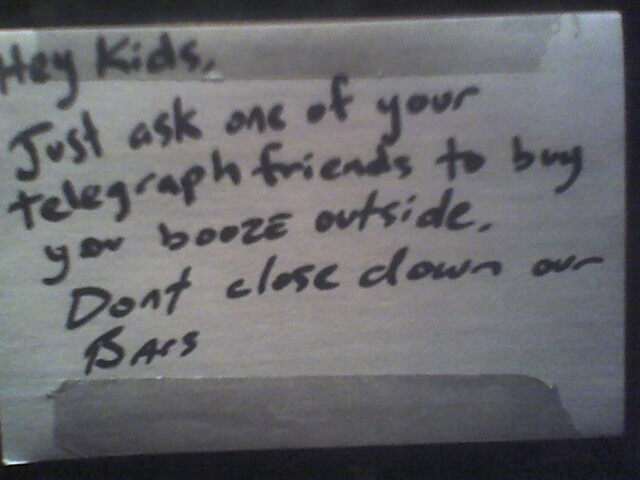 Hey Kids,
Just ask one of your
telegraph friends to buy
you booze outside.
Dont close down our
Bars